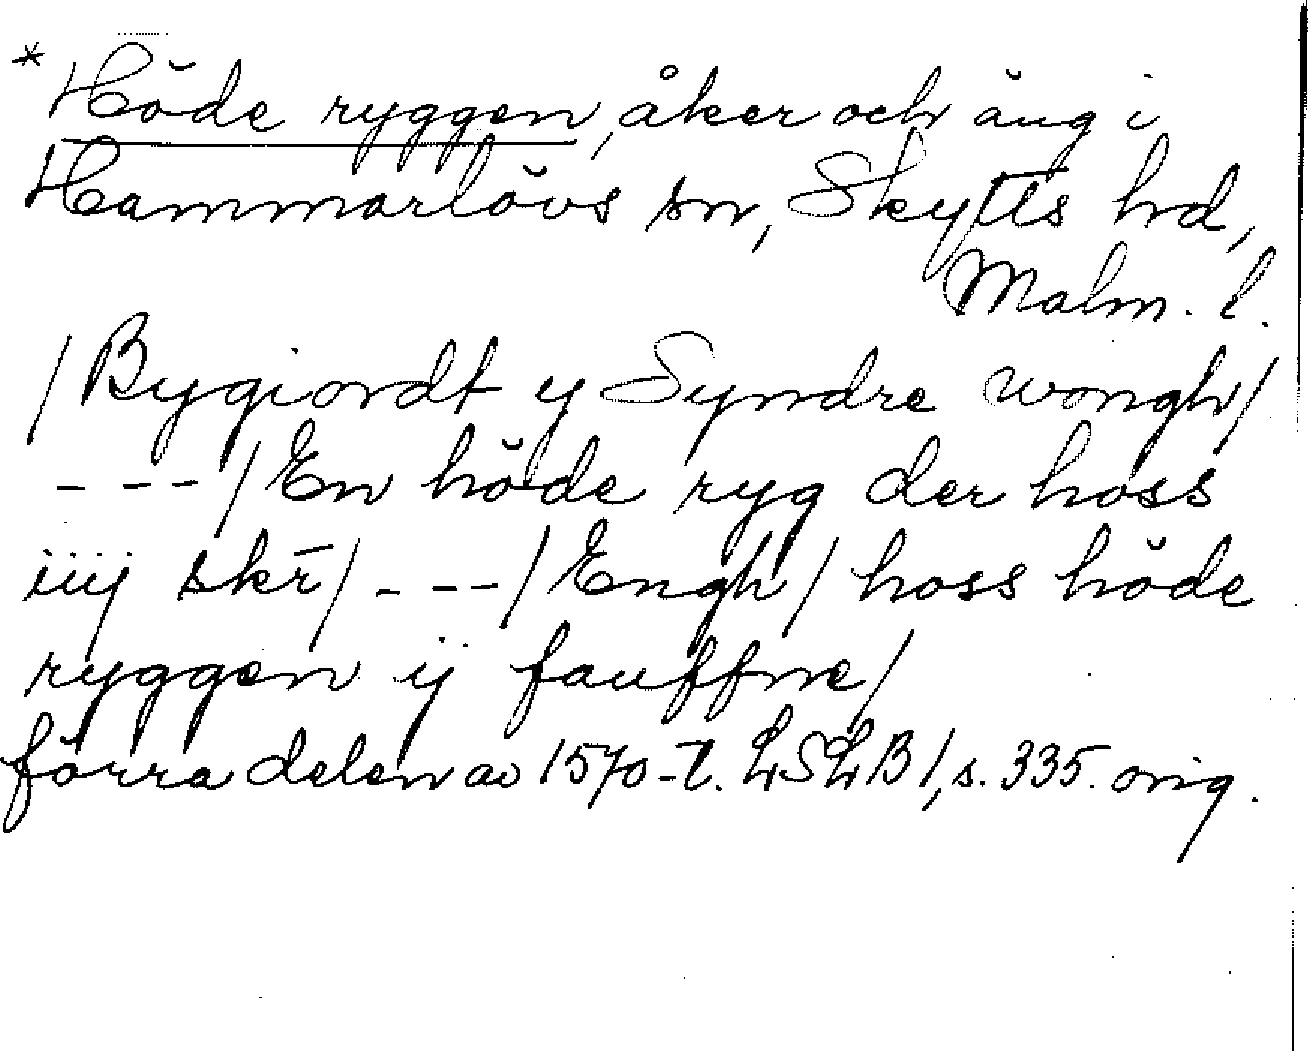 *Höde ryggen, åker och äng i
Hammarlövs sn, Skytts hd,
Malm. l.
/Bygiordt y Syndre wongh/
---/En höde ryg der hoss
iiij skr̄/---/Engh/hoss höde
ryggen ij fauffne/
förra delen av 1570-t. LSLB 1, s. 335. orig.